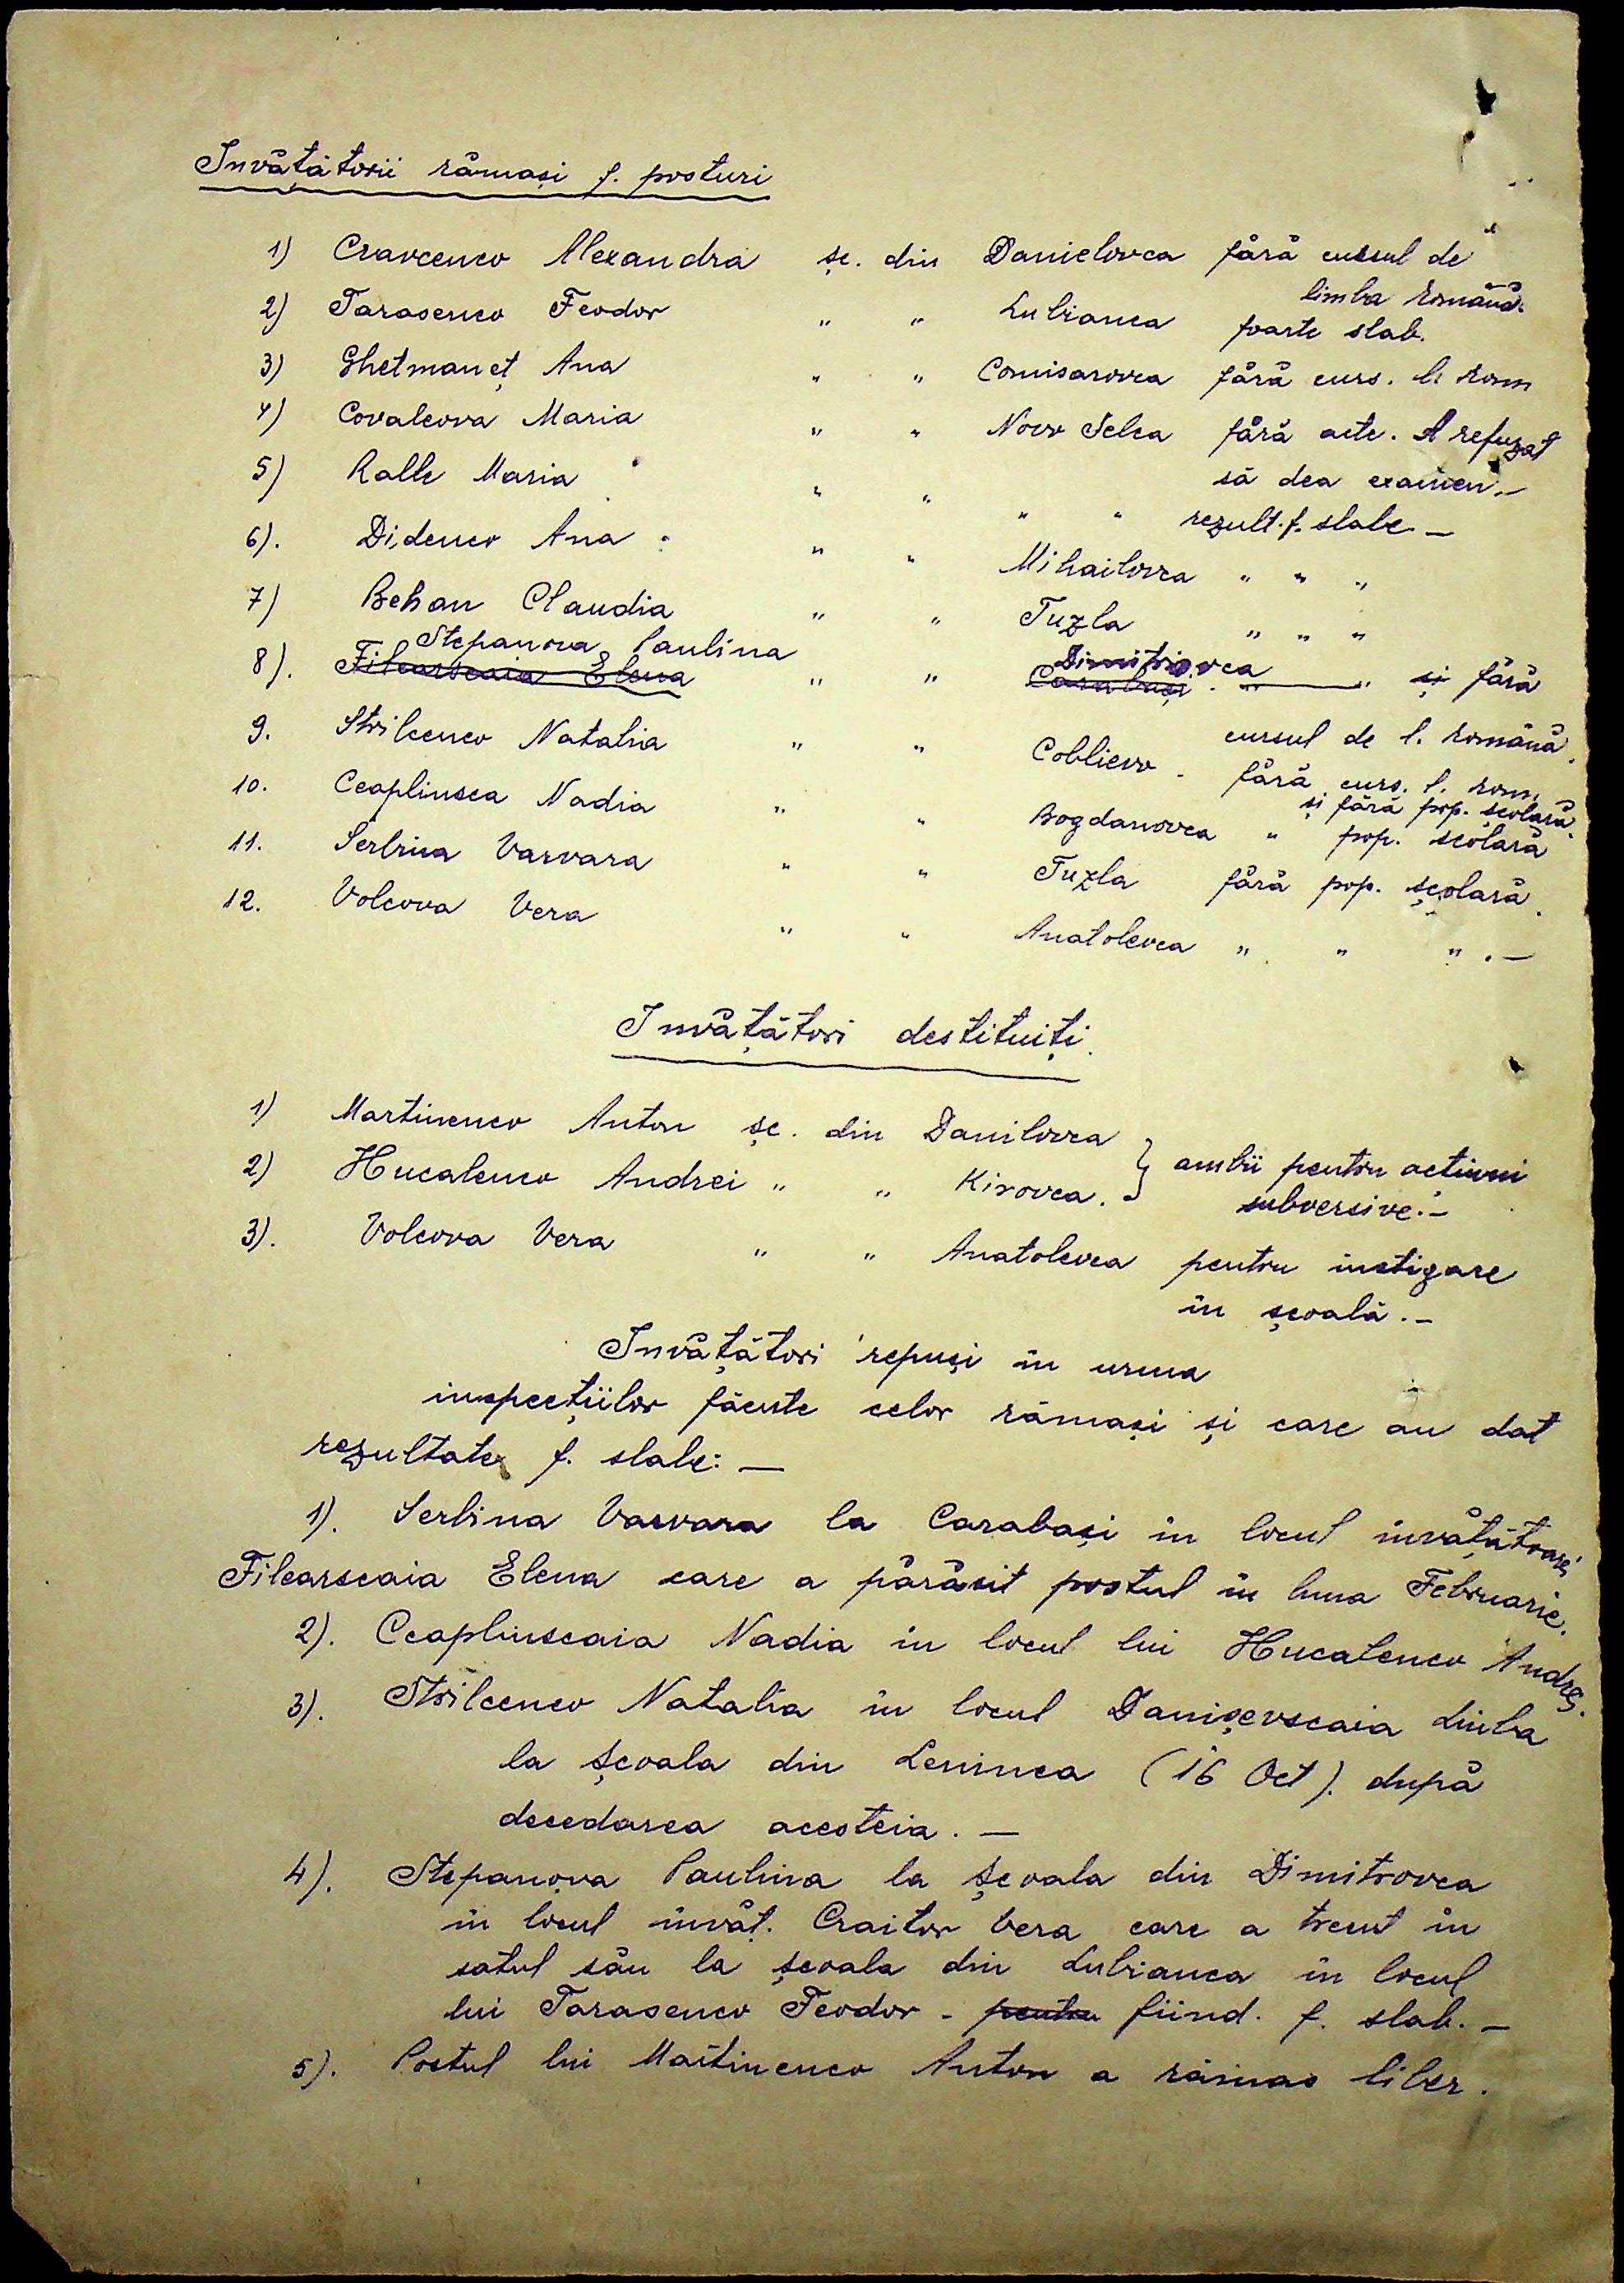 Invățătorii rămași f. posturi
1) Cravcenco Alexandra șc. din Danielovca fără cursul de limba română.
2) Tarasenco Feodor " " Lubianca foarte slab.
3) Ghetmaneț Ana " " Comisarovca fără curs. l. rom
4) Covaleova Maria " " Novo Selca fără acte. A refuzat să dea examen.—
5) Ralle Maria " " " " rezult. f. slabe.—
6). Didenco Ana " " Mihailovca " " "
7) Behan Claudia " " Tuzla " " "
Stepanova Paulina Dimitrovca
8). Filcarscaia Elena " " Carabași " — " și fără cursul de l. română.
9. Strilcenco Natalia " " Coblievo - fără curs. l. rom. și fără pop. școlară.
10. Ceaplinsca Nadia " " Bogdanovca " pop. școlară
11. Serbina Varvara " " Tuzla fără pop. școlară.
12. Volcova Vera " " Anatolevca " " " .—
Invățători destituiți.
1) Martinenco Anton șc. din Danilovca } ambii pentru acțiuni
2) Hucalenco Andrei " " Kirovca. } subversive.—
3). Volcova Vera " " Anatolevca pentru instigare
în școală.—
Invățători repuși în urma
inspecțiilor făcute celor rămași și care au dat
rezultate f. slabe:—
1). Serbina Varvara la Carabași în locul învățătoarei
Filcarscaia Elena care a părăsit postul în luna Februarie.
2). Ceaplinscaia Nadia în locul lui Hucalenco Andrei.
3). Strilcenco Natalia în locul Danișevscaia Liuba
la școala din Leninca (16 Oct). după
decedarea acesteia.—
4). Stepanova Paulina la școala din Dimitrovca
în locul învăț. Craitor Vera care a trecut în
satul său la școala din Lubianca în locul
lui Tarasenco Feodor - pentru fiind. f. slab.—
5). Postul lui Martinenco Anton a rămas liber.